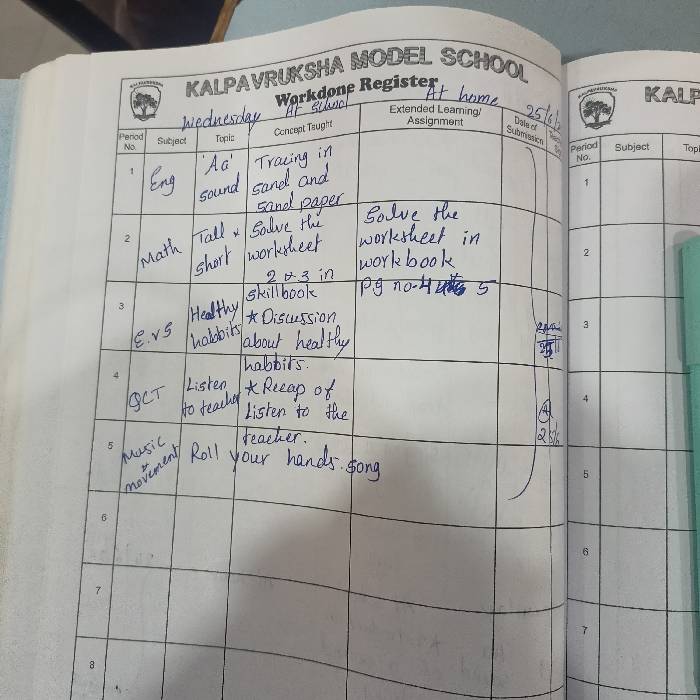 KALPAVRUKSHA MODEL SCHOOL
Workdone Register
Wednesday At School At home
Period No. Subject Topic Concept Taught Extended Learning/ Assignment Date of Submission
1 Eng 'Aa' sound Tracing in sand and sand paper
2 Math Tall & short Solve the worksheet 2 & 3 in skillbook Solve the worksheet in workbook pg no-4 5
3 E.VS Healthy habbits ★ Discussion about healthy habbits.
4 QCT Listen to teacher ★ Recap of Listen to the teacher.
5 Music & movement Roll your hands song
6
7
8
KALP
Period No. Subject Topi
1
2
3
4
5
6
7